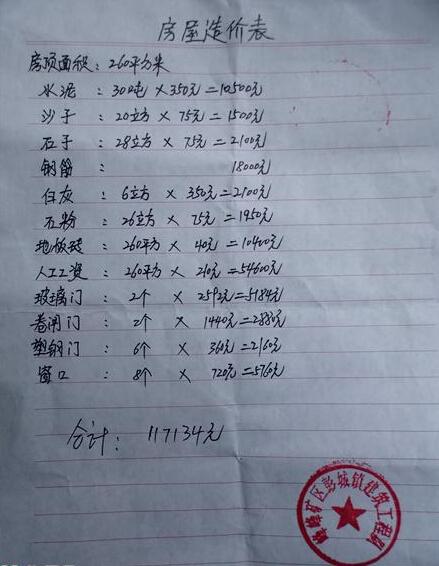 房屋造价表
房顶面积：260平方米
水泥：30吨×350元=10500元
沙子：20立方×75元=1500元
石子：28立方×75元=2100元
钢筋：18000元
白灰：6立方×350元=2100元
石粉：26立方×75元=1950元
地板砖：260平方×40元=10400元
人工工资：260平方×210元=54600元
玻璃门：2个×2592元=5184元
卷闸门：2个×1440元=2880元
塑钢门：6个×360元=2160元
窗口：8个×720元=5760元
合计：117134元
峰峰矿区彭城镇建筑工程队